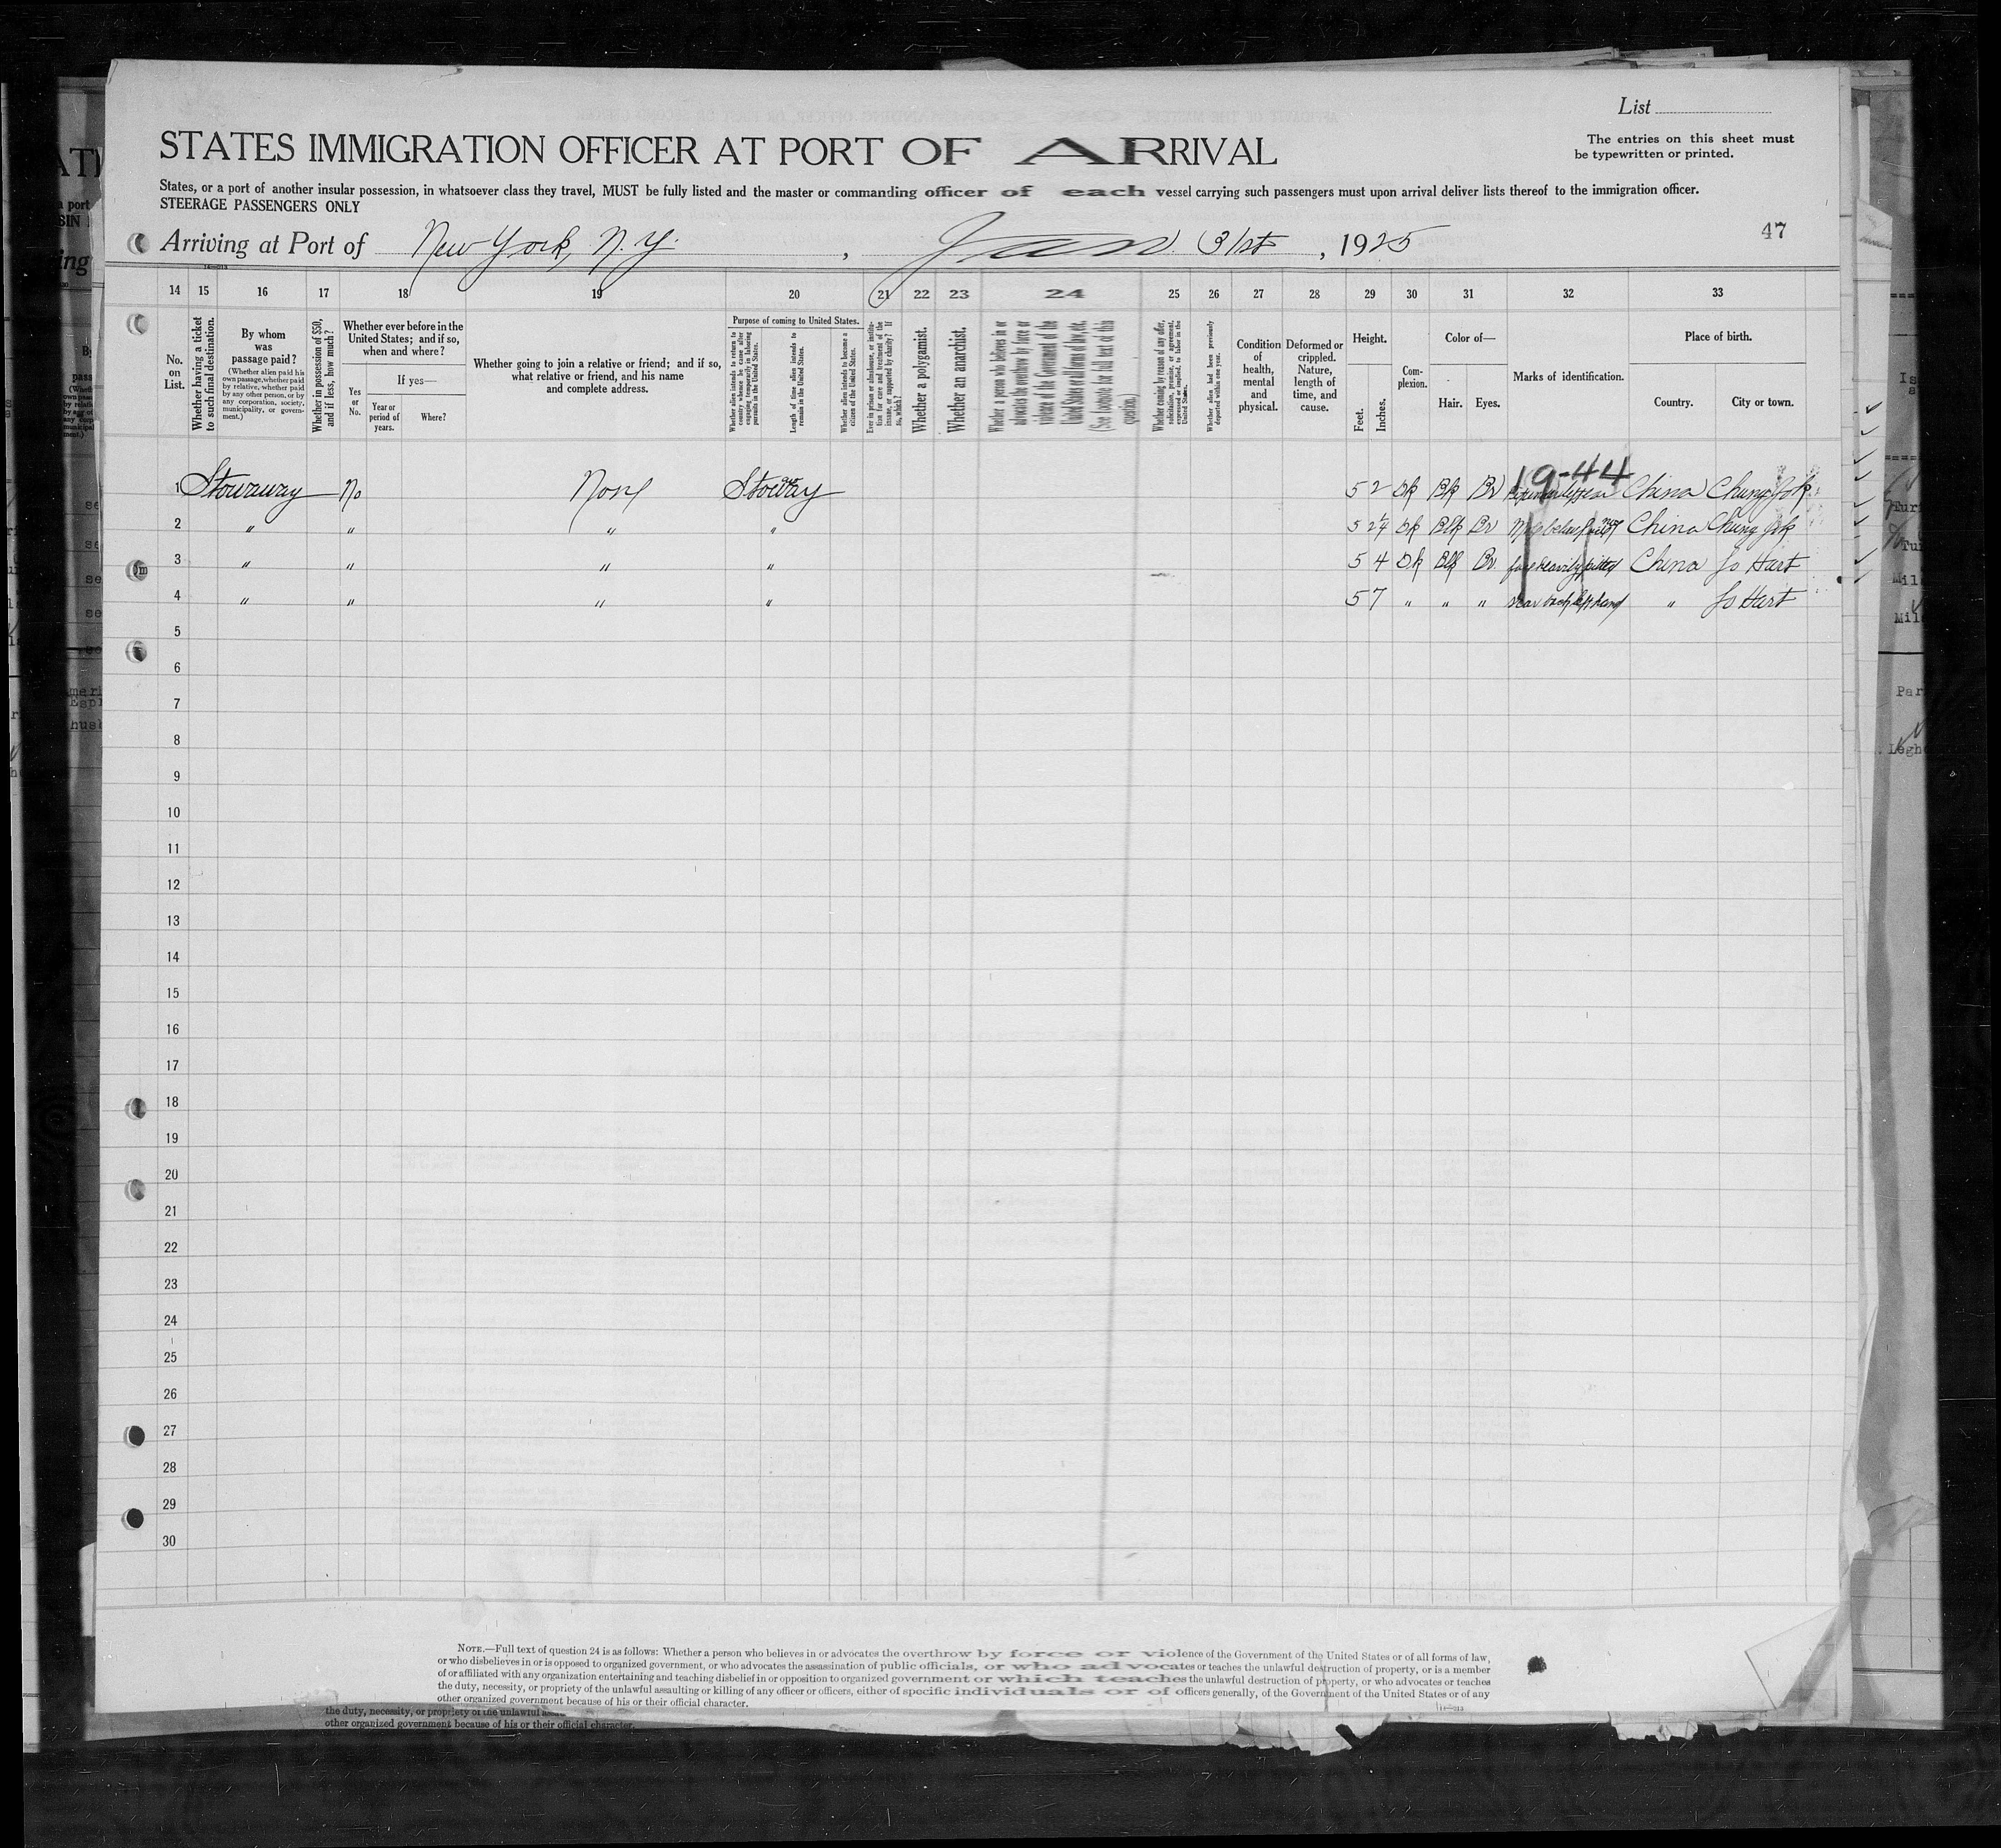 List
The entries on this sheet must
be typewritten or printed.
STATES IMMIGRATION OFFICER AT PORT OF ARRIVAL
States, or a port of another insular possession, in whatsoever class they travel, MUST be fully listed and the master or commanding officer of each vessel carrying such passengers must upon arrival deliver lists thereof to the immigration officer.
STEERAGE PASSENGERS ONLY
Arriving at Port of New York, N.Y. , Jan. 31st , 1925
47
14 15 16 17 18 19 20 21 22 23 24 25 26 27 28 29 30 31 32 33
No. on List.
Whether having a ticket to such final destination.
By whom was passage paid?
(Whether alien paid his own passage, whether paid by relative, whether paid by any other person, or by any corporation, society, municipality, or government.)
Whether in possession of $50, and if less, how much?
Whether ever before in the United States; and if so, when and where?
Yes or No.
If yes—
Year or period of years.
Where?
Whether going to join a relative or friend; and if so, what relative or friend, and his name and complete address.
Purpose of coming to United States.
Whether alien intends to return to country whence he came after engaging temporarily in laboring pursuits in the United States.
Length of time alien intends to remain in the United States.
Whether alien intends to become a citizen of the United States.
Ever in prison or almshouse, or institution for care and treatment of the insane, or supported by charity? If so, which?
Whether a polygamist.
Whether an anarchist.
Whether a person who believes in or advocates the overthrow by force or violence of the Government of the United States or all forms of law, etc. (See footnote for full text of this question.)
Whether coming by reason of any offer, solicitation, promise, or agreement, expressed or implied, to labor in the United States.
Whether alien had been previously deported within one year.
Condition of health, mental and physical.
Deformed or crippled. Nature, length of time, and cause.
Height.
Feet. Inches.
Complexion.
Color of—
Hair. Eyes.
Marks of identification.
Place of birth.
Country. City or town.
19-44
1 Stowaway No None Stoway 5 2 Dk Blk Br China Chung Jok
2 " " " " 5 2¼ Dk Blk Br China Chung Jok
3 " " " " 5 4 Dk Blk Br. face heavily pitted China Jo Hart
4 " " " " 5 7 " " " scar back left hand " Jo Hart
5
6
7
8
9
10
11
12
13
14
15
16
17
18
19
20
21
22
23
24
25
26
27
28
29
30
NOTE.—Full text of question 24 is as follows: Whether a person who believes in or advocates the overthrow by force or violence of the Government of the United States or of all forms of law,
or who disbelieves in or is opposed to organized government, or who advocates the assassination of public officials, or who advocates or teaches the unlawful destruction of property, or is a member
of or affiliated with any organization entertaining and teaching disbelief in or opposition to organized government or which teaches the unlawful destruction of property, or who advocates or teaches
the duty, necessity, or propriety of the unlawful assaulting or killing of any officer or officers, either of specific individuals or of officers generally, of the Government of the United States or of any
other organized government because of his or their official character.
the duty, necessity, or propriety of the unlawful
other organized government because of his or their official character.